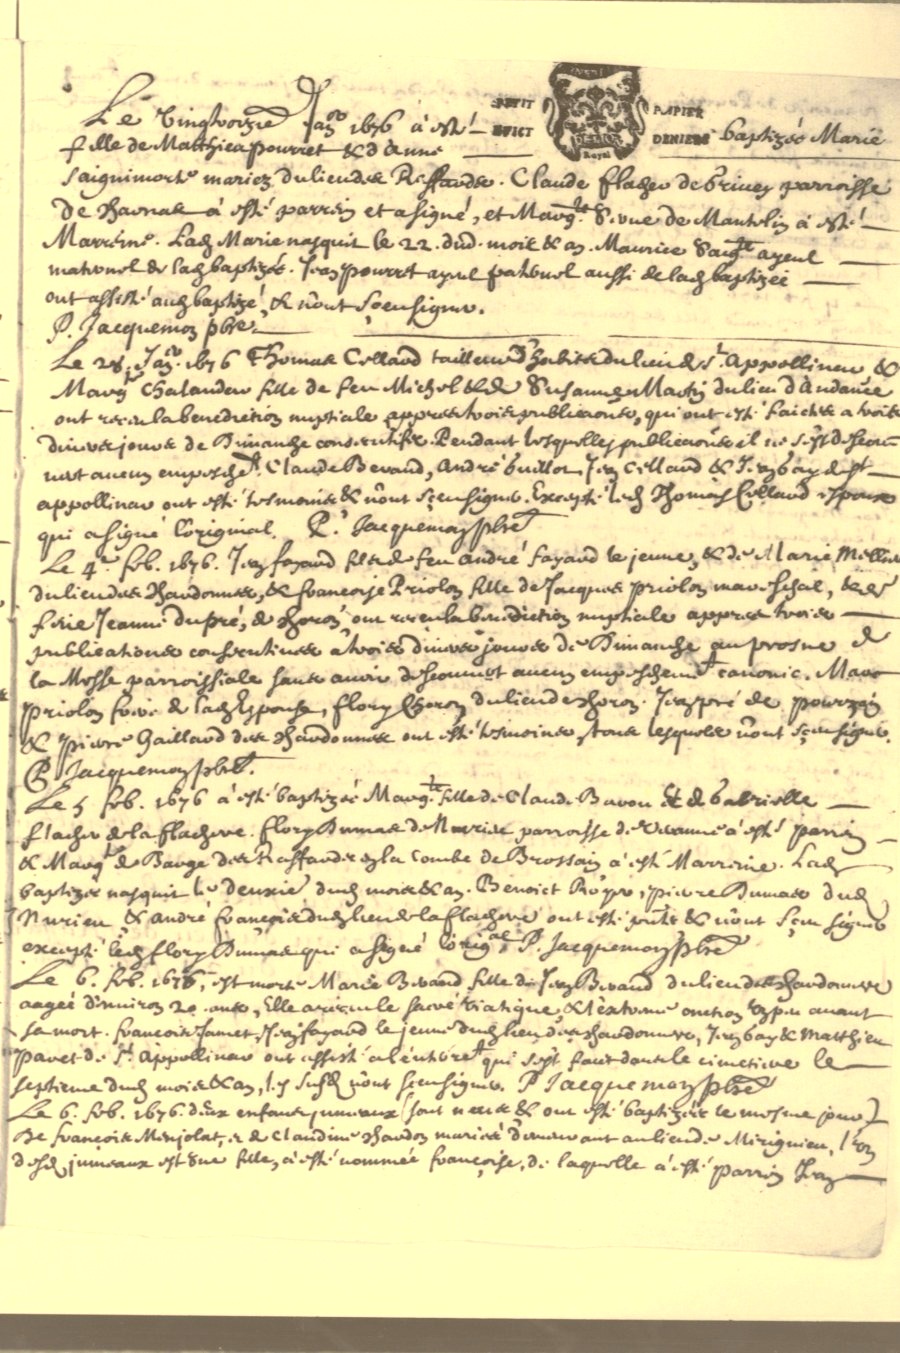 PETIT PAPIER
HUICT DENIERS
Royal
Le Vingtroizie Janr 1676 à esté — baptizée Marie
fille de Matthieu pourret & d'Anne
mariez du lieu des Reffandes. Claude flacher de parroisse
de Charnas à esté parrein et a signé, et Margte Seue de Mantelin à esté —
Marreine. Ladt Marie nasquit le 22. dud. mois & an. Maurice ayeul —
maternel de lad baptizée. Jean pourret ayeul paternel aussi de lad baptizée —
ont assisté aud baptizé, & n'ont sceu signer.
P. Jacquemon pbre.
Le 28. Janr. 1676 Thomas Collaud tailleur d'habits du lieu de St. Appollinar &
Margte Chalandar fille de feu Michel & de Susanne Mastin du lieu d'Andance
ont receu la benediction nuptiale appres trois publicaons, qui ont esté faictes a trois
divers jours de Dimanche consecutifs. Pendant lesquelles publicaons il ne s'est descou
vert aucun empeschet. Claude Beraud, André Guillot Jean Collaud & Jean bay de St —
appollinar ont esté tesmoins & n'ont sceu signer. Excepté led Thomas Collaud espoux
qui a signé l'original. P. Jacquemon pbre
Le 4e feb. 1676. Jean fayard fils de feu André fayard le jeune, & de Marie
du lieu des Chardonnes, & françoise Priolon fille de Jacques priolon mareschal, & de
feüe Jeanne dupré, de Choron ont receu la benediction nuptiale appres trois —
publications consecutives à trois divers jours de Dimanche au prosne de
la Messe parroissiale sans avoir descouvert aucun empeschemt canonic. Marc
priolon frere de lad Espouse, flory Choron du lieu de Choron. Jean pré de
& pierre Gaillard des Chardonnes ont esté tesmoins, tous lesquels n'ont sceu signer.
P. Jacquemon pbre.
Le 5 feb. 1676 à esté baptizée Margte fille de Claude Bavou & de Gabrielle —
flacher de la flachere. flory Dumas de Nurieu parroisse de à esté parrein —
& Margte de Bauge des Reffandes en la Combe de Brossain à esté Marreine. Lad
baptizée nasquit le deuxie dud mois & an. Benoict pierre Dumas dud
Nurieu, & André françois dud lieu de la flachere ont esté pnts & n'ont sceu signer
excepté led flory Dumas qui a signé l'original. P. Jacquemon pbre
Le 6. feb. 1676, est morte Marie Beraud fille de Jean Beraud du lieu des Chardonnes
aagée d'environ 20 ans, Elle a receu le sacré Viatique & l'extreme onction un peu avant
sa mort. françois Jamet, Jean fayard le jeune dud lieu des Chardonnes, Jean bay & Matthieu
pavet de St Appollinar ont assisté a l'enterret qui s'est fait dans le cimetiere le —
septieme dud mois & an, n'ont sceu signer. P. Jacquemon pbre
Le 6. feb. 1676. deux enfans jumeaux (sont neés & ont esté baptizés le mesme jour)
de françois Minjolat, & de Claudine Chardon mariés demeurant au lieu de Mirignieu, l'un
desd jumeaux est une fille, a esté nommée françoise, de laquelle à esté parrein Jean —